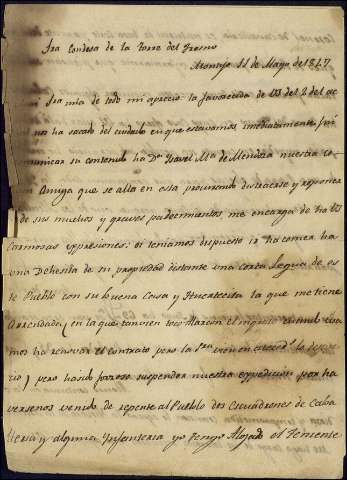 Sra Condesa de la Torre del Fresno
Montijo 11 de Mayo de 1847
Sra mia de todo mi aprecio la favorecida de VS del 2 del ac
nos ha sacado del cuidado en que estavamos imediatamente fui
comunicar su contenido ha Dª Ysavel Mª de Mendoza nuestra co
Amiga que se alla en esta procurando distraerse y reponer
de sus muchos y graves padecimientos me encarga de ha VS
Carinosas espresiones: oi teniamos dispuesto ir ha comer ha
una Dehesita de su propiedad distante una corta Legua de es
te Pueblo con su buena Casa y Huertecita la que me tiene
Arrendada en la que
mos ha renovar el contrato pero la Sra
pero hasido forzoso suspender nuestra espedicion por ha
versenos venido de repente al Pueblo dos Escuadrones de Caba
lleria y alguna Infanteria yo tengo Alojado el Teniente